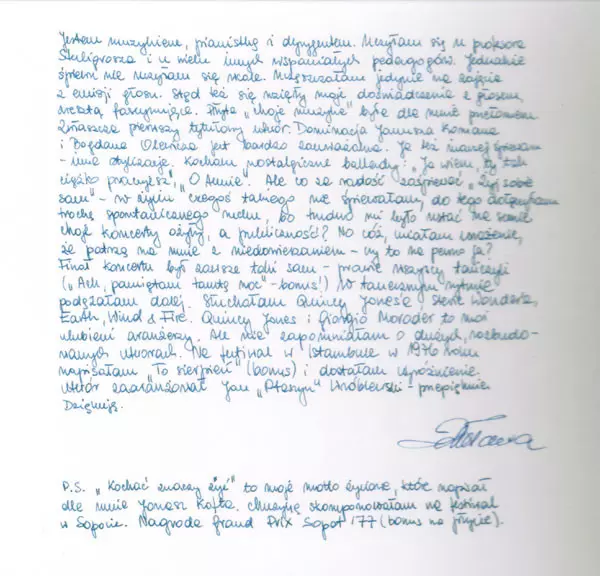 Jestem muzykiem, pianistką i dyrygentem. Uczyłam się u profesora
Stuligrosza i u wielu innych wspaniałych pedagogów. Jednakże
śpiewu nie uczyłam się wcale. Uczęszczałam jedynie na zajęcia
z emisji głosu. Stąd też się wzięły moje doświadczenia z głosem,
zresztą fascynujące. Płyta „Choję muzykę" była dla mnie przełomem
Zwłaszcza pierwszy tytułowy utwór. Dominacja Janusza Komana
i Bogdana Olewicza jest bardzo zauważalna. Ja też inaczej śpiewam
- inne stylizacje. Kocham nostalgiczne ballady: „Ja wiem, ty tak
ciężko pracujesz", „O Annie". Ale co za radość zaśpiewać „Żyj sobie
sam" - w życiu czegoś takiego nie śpiewałam, do tego dołączyłam
trochę spontanicznego ruchu, bo trudno mi było ustać na scenie
Moje koncerty ożyły, a publiczność? No cóż, miałam wrażenie,
że patrzą na mnie z niedowierzaniem - czy to na pewno ja?
Finał koncertu był zawsze taki sam - prawie wszyscy tańczyli
(„Ach, pamiętam tamtą noc" - bonus!) W tanecznym rytmie
podążałam dalej. Słuchałam Quincy Jones'a Stevie Wonder'a,
Earth, Wind & Fire. Quincy Jones i Giorgio Moroder to moi
ulubieni aranżerzy. Ale nie zapomniałam o dużych, rozbudo-
wanych utworach. Na festiwal w Istambule w 1976 roku
napisałam „To sierpień" (bonus) i dostałam wyróżnienie.
Utwór zaaranżował Jan „Ptaszyn" Wróblewski - przepięknie
Dziękuję.
P.S. „Kochać znaczy żyć" to moje motto życiowe, które napisał
dla mnie Jonasz Kofta. Muzykę skomponowałam na festiwal
w Sopocie. Nagroda Grand Prix Sopot '77 (bonus na płycie).